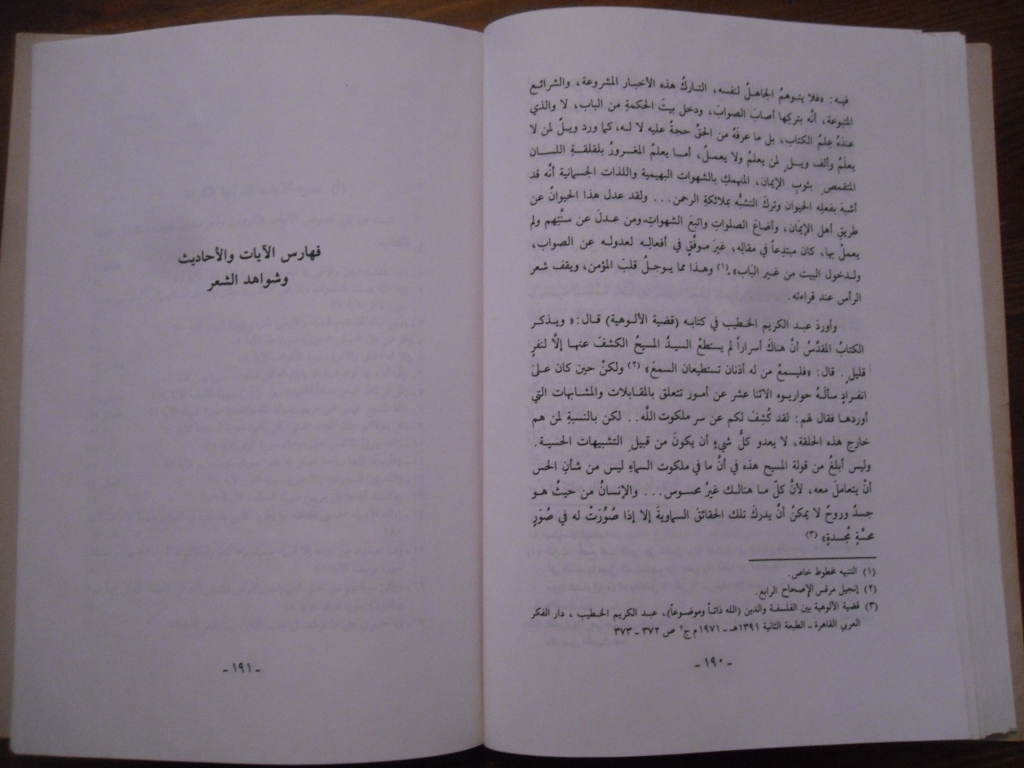 فيه: «فلا يتوهمُ الجاهلُ لنفسه، التاركُ هذه الأخبار المشروعة، والشرائع
المتبوعة، أنَّه بتركِها أصابَ الصوابَ، ودخل بيتَ الحكمةِ من الباب، لا والذي
عندَهُ عِلمُ الكتاب، بل ما عرفَهُ من الحقِّ حجةٌ عليه لا لـه، كما ورد ويلٌ لمن لا
يعلَمُ وألف ويـلٍ لمن يعلمُ ولا يعملُ، أمـا يعلمُ المغـرورُ بلقلقـةِ اللسـان
المتقمص بثوبِ الإيمان، المنهمكِ بالشهوات البهيمية واللذات الجسمانية أنَّه قد
أشبهَ بفعلِه الحيوان وتركَ التشبُّه بملائكةِ الرحمن... ولقد عدل هذا الحيوانُ عن
طريقِ أهل الإيمان، وأضاعَ الصلواتِ واتبعَ الشهواتِ، ومن عـدلَ عن سنَّتِهم ولم
يعملْ بها، كان مبتدِعاً في مقالِه، غيرَ موفَّقٍ في أفعالِه لعدولـه عن الصواب،
ولدخول البيت من غير البَاب».(١) وهذا مما يوجـلُ قلبَ المؤمن، ويقف شعر
الرأس عند قراءته.
وأوردَ عبـد الكريم الخطيب في كتابـه (قضية الألـوهية) قـال: «ويـذكـر
الكتابُ المقدَّسُ أنَّ هناكَ أسراراً لم يستطعْ السيـدُ المسيحُ الكشفَ عنهـا إلَّا لنفرٍ
قليلٍ. قال: «فليسمعْ من له أذنان تستطيعان السمعَ» (٢) ولكنْ حين كان عـلى
انفـرادٍ سألَـهُ حواريـوه الاثنا عشر عن أمـورٍ تتعلق بالمقـابـلات والمشـابهـات التي
أوردهـا فقال لهم: لقد كُشِفَ لكم عن سر ملكوت اللَّه.. لكن بالنسبةِ لمن هم
خارج هذه الحلقة، لا يعدو كلُّ شيءٍ أن يكونَ من قبيلِ التشبيهات الحسية.
وليس أبلغُ من قولة المسيح هذه في أنَّ ما في ملكوت السماءِ ليس من شأنِ الحس
أنْ يتعاملَ معه، لأنَّ كلّ ما هنالـك غيرُ محسوس... والإنسانُ من حيثُ هـو
جسدٌ وروحٌ لا يمكنُ أنْ يدركَ تلك الحقائقَ السماويةَ إلا إذا صُوِّرَتْ له في صُوَرٍ
محسَّةٍ مُجسدةٍ» (٣)
(١) التنبيه مخطوط خاص.
(٢) إنجيل مرقس الإصحاح الرابع.
(٣) قضية الألوهية بين الفلسفة والدين (الله ذاتـاً وموضـوعاً)، عبد الكريم الخـطيب، دار الفكر
العربي القاهرة ـ الطبعة الثانية ١٣٩١هـ ـ ١٩٧١م ج٢ ص ٣٧٢ ـ ٣٧٣
ـ ١٩٠ ـ
فهارس الآيات والأحاديث
وشواهد الشعر
ـ ١٩١ ـ